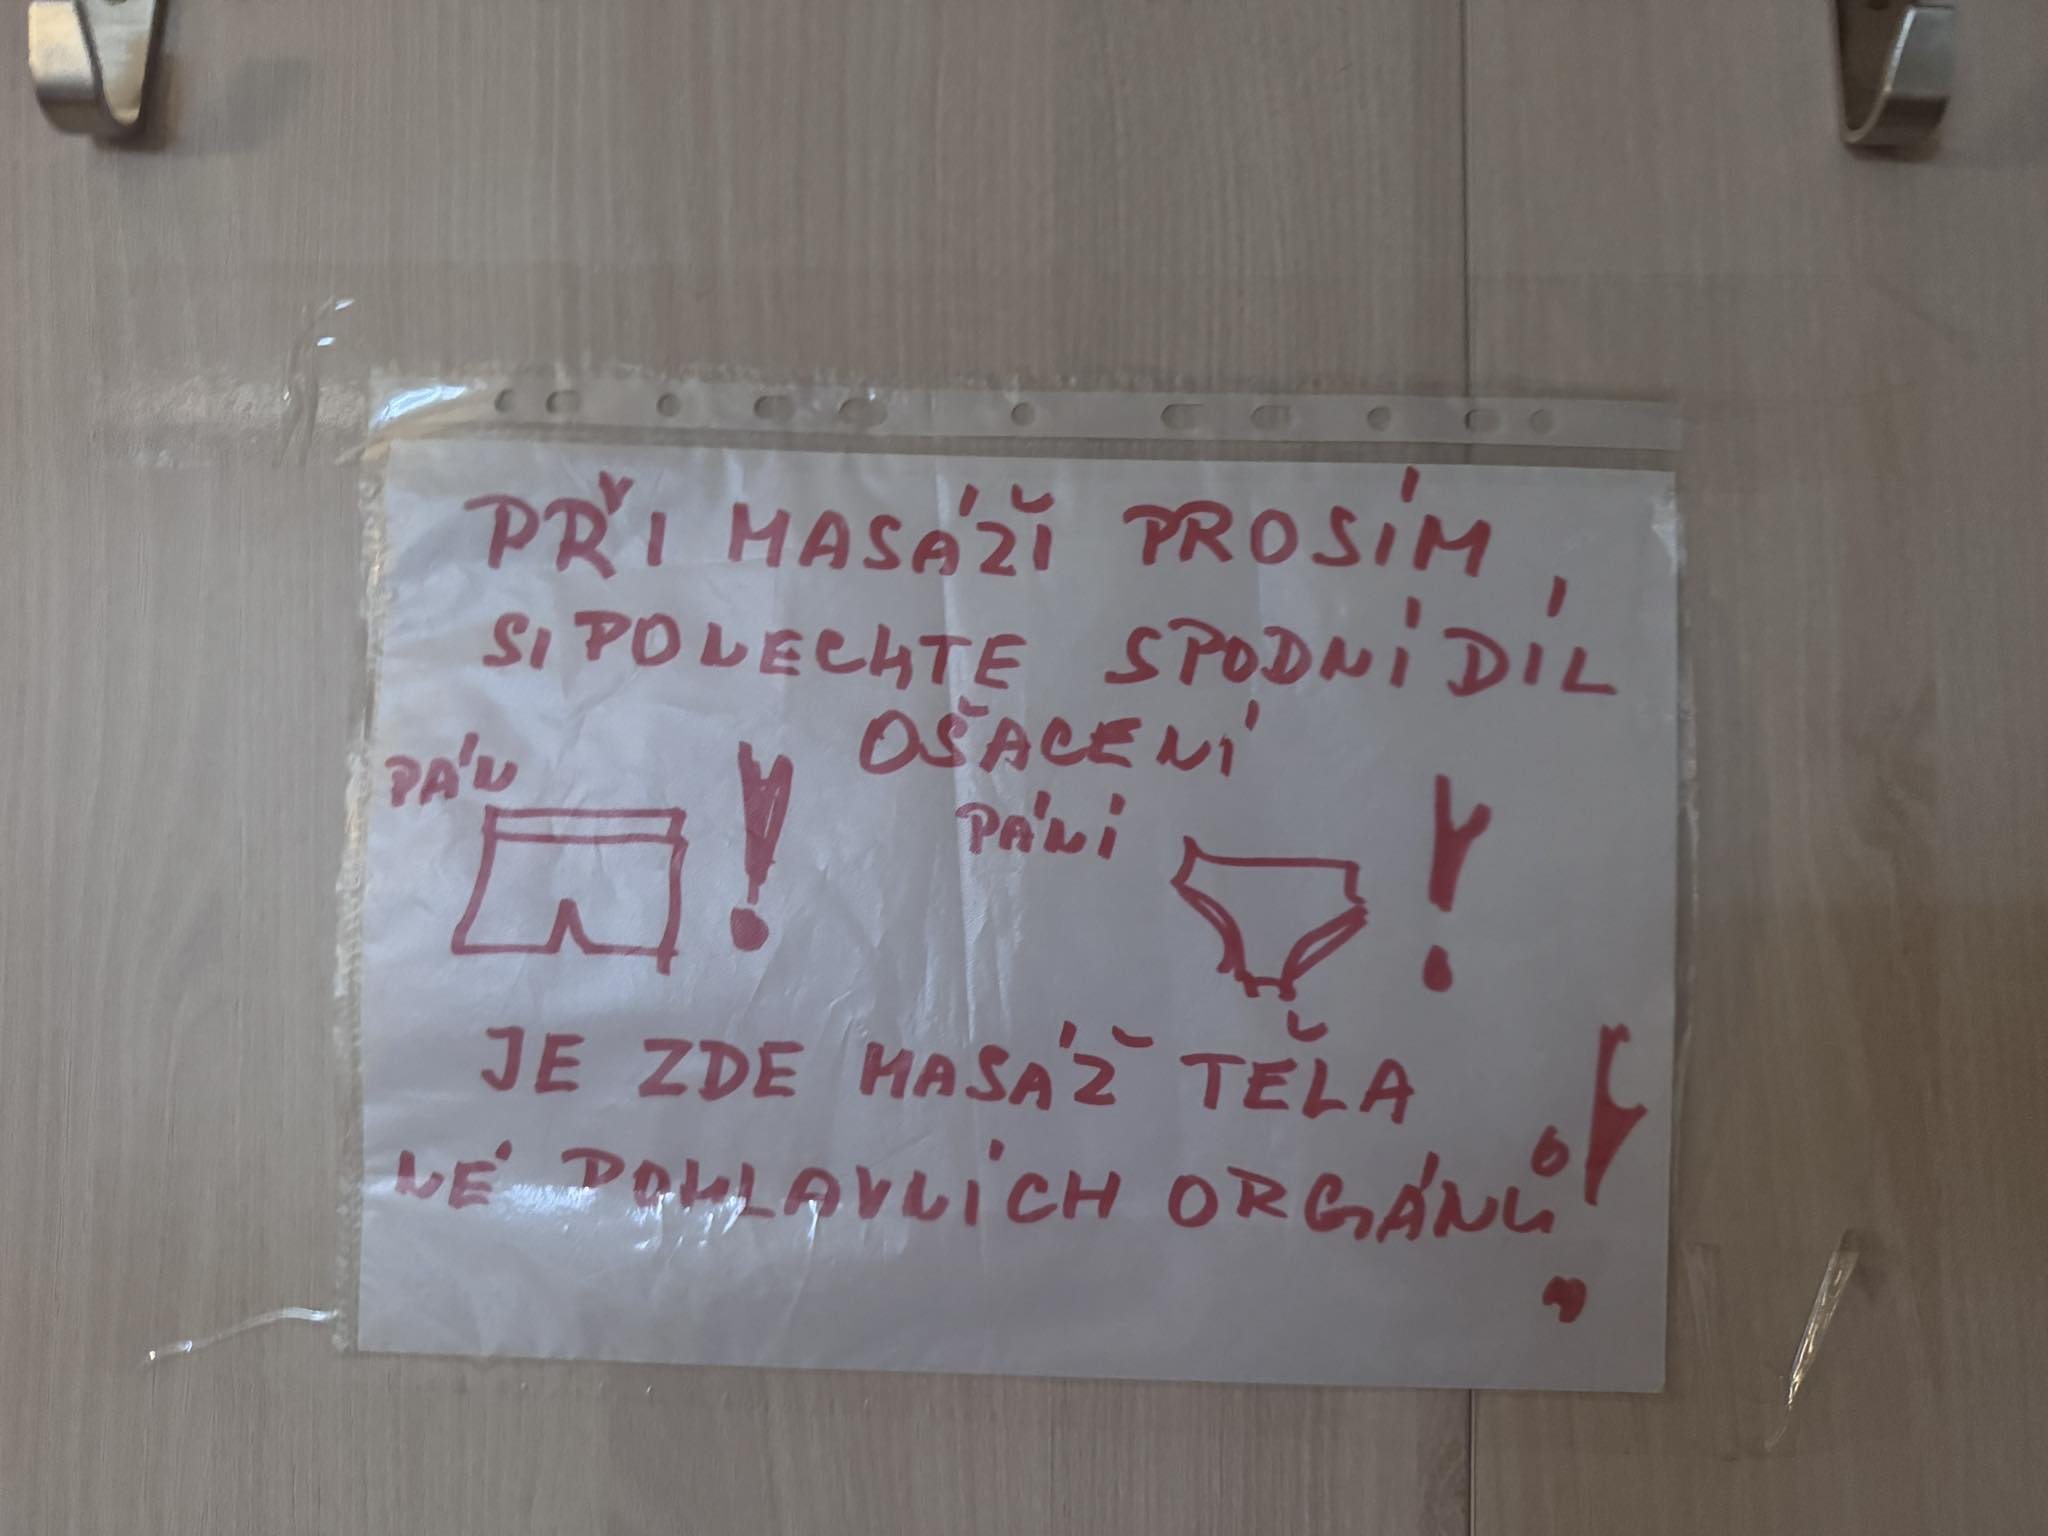 PŘI MASÁŽI PROSÍM
SI PONECHTE SPODNÍ DÍL
OŠACENÍ
PÁN !
PÁNÍ !
JE ZDE MASÁŽ TĚLA
NÉ POHLAVNÍCH ORGÁNŮ!